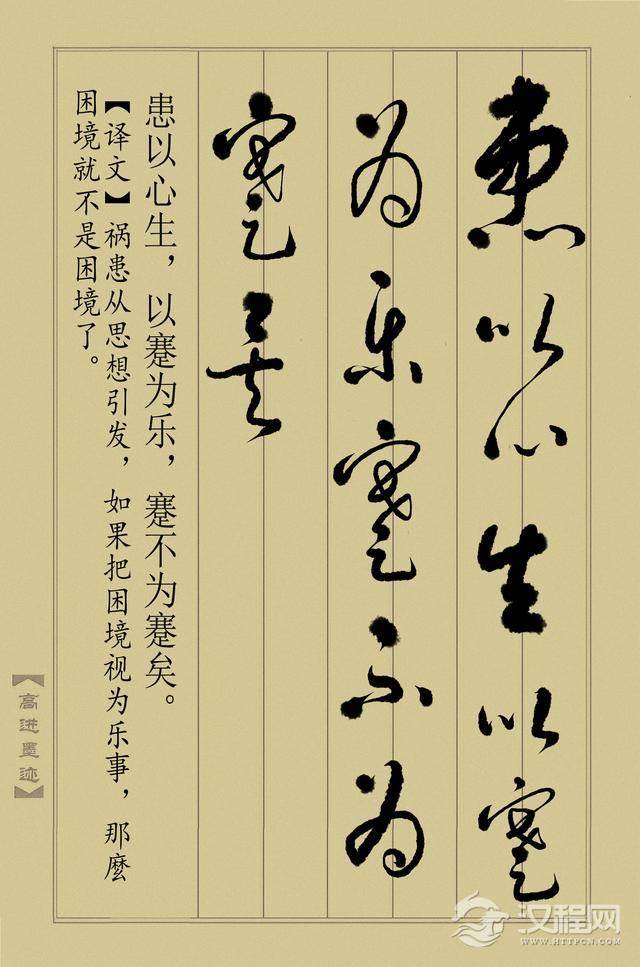 患以心生以蹇
为乐蹇不为
蹇矣
患以心生，以蹇为乐，蹇不为蹇矣。
【译文】祸患从思想引发，如果把困境视为乐事，那麽
困境就不是困境了。
【高进墨迹】
汉程网
WWW.HTTPCN.COM